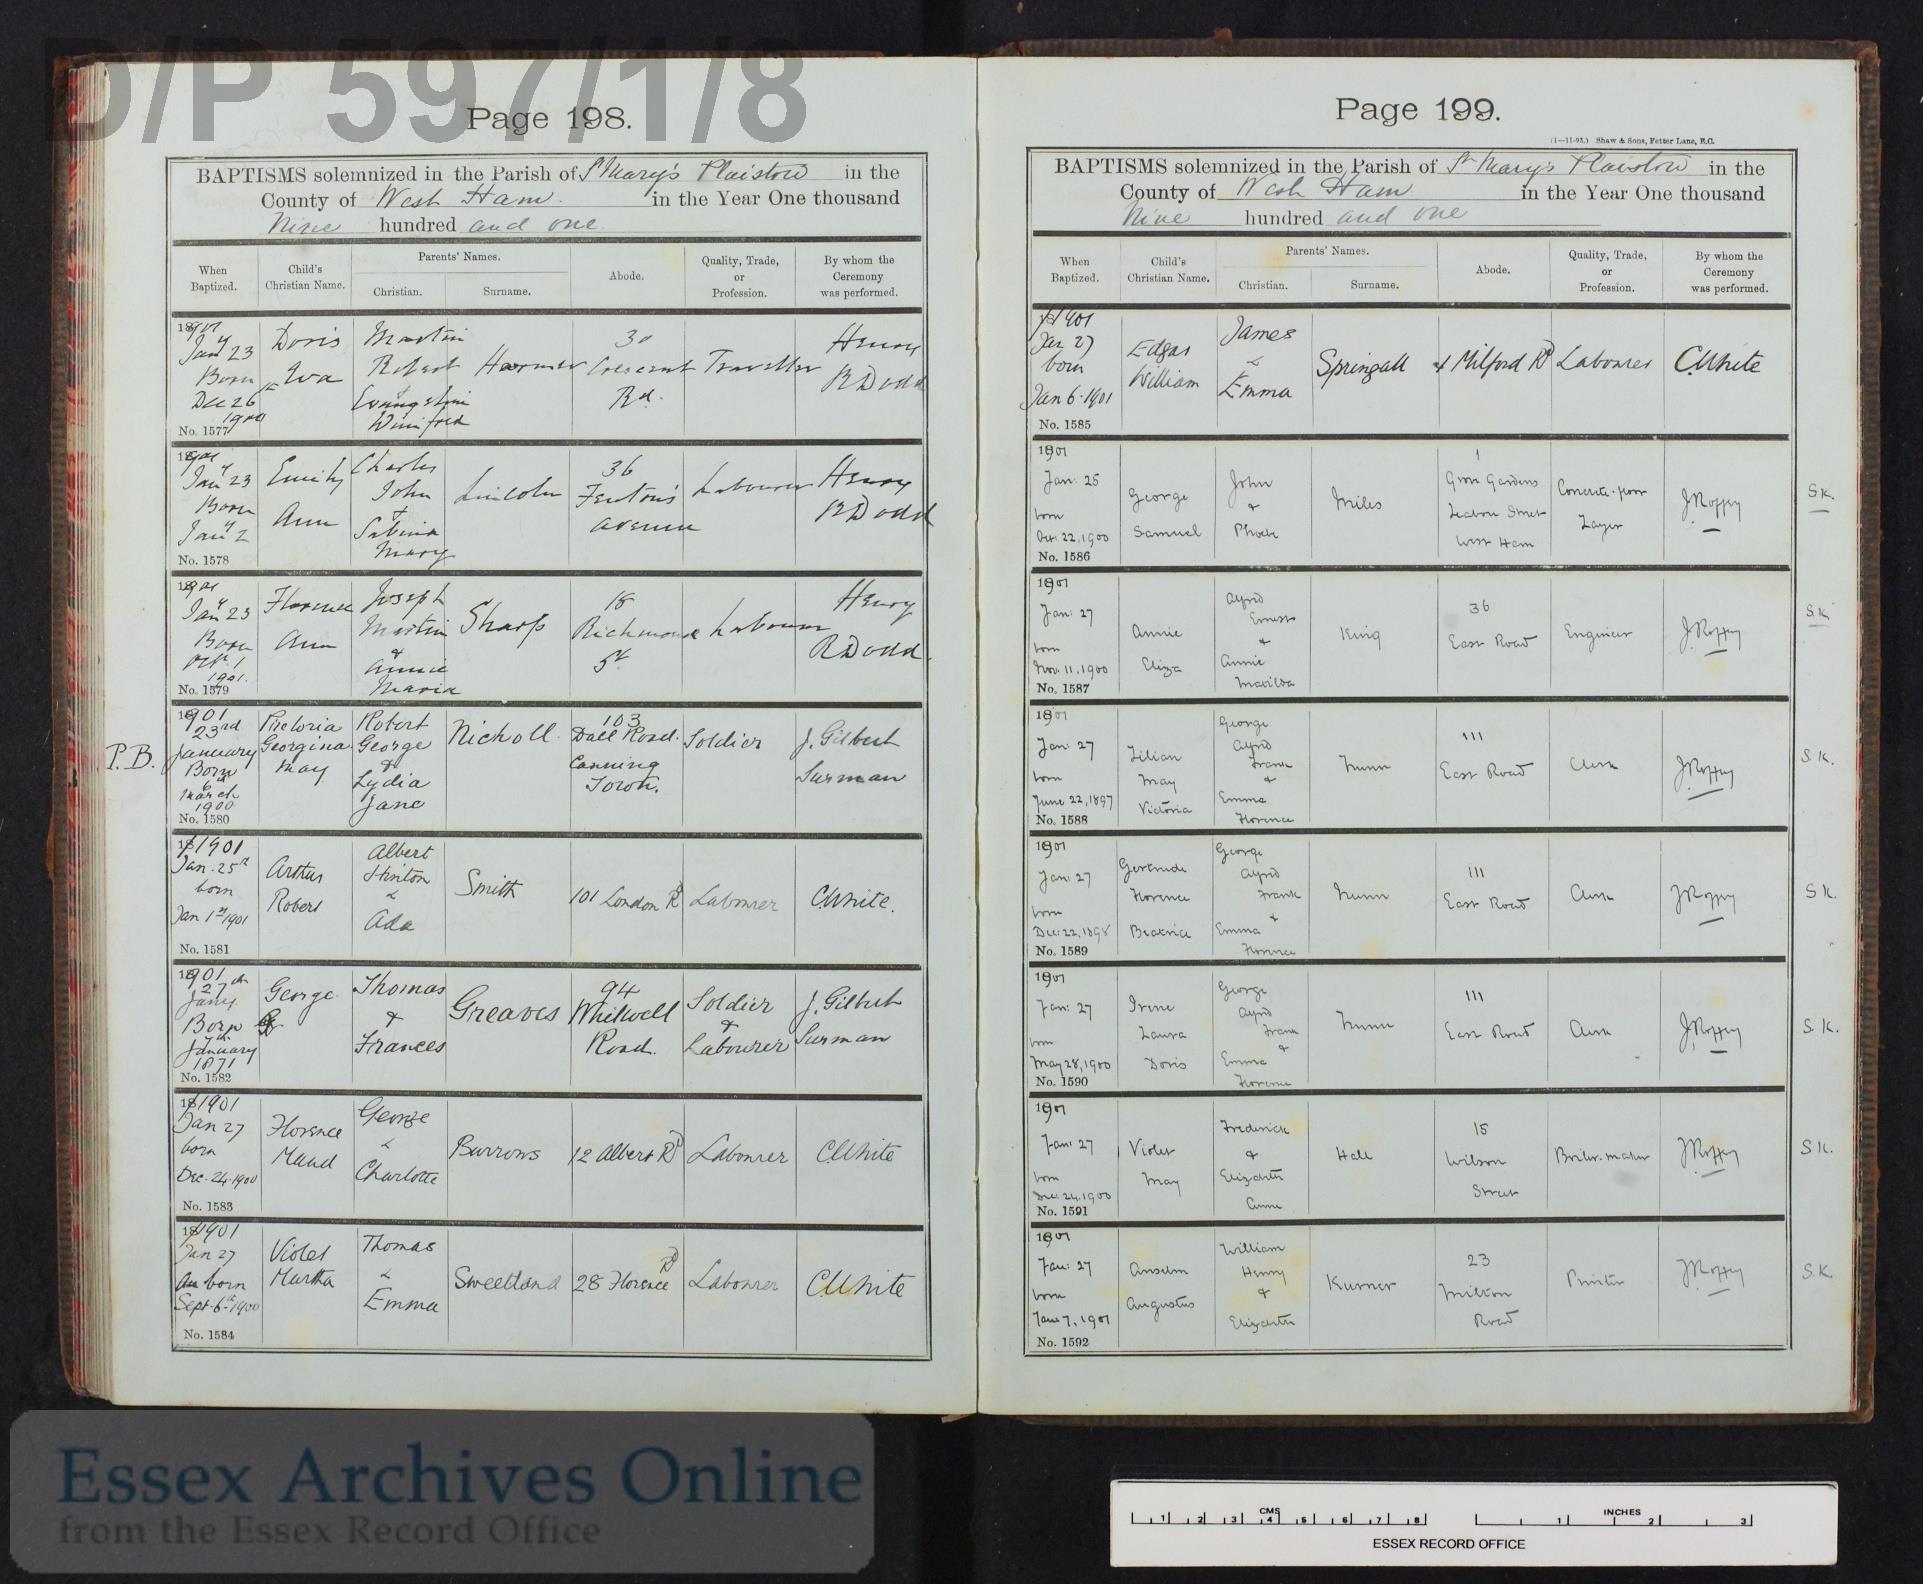 D/P 597/1/8
Page 198.
BAPTISMS solemnized in the Parish of St Mary's Plaistow in the
County of West Ham. in the Year One thousand
Nine hundred and one.
When Baptized.
Child's Christian Name.
Parents' Names.
Christian.
Surname.
Abode.
Quality, Trade, or Profession.
By whom the Ceremony was performed.
1901
Jany 23
Born
Dec 26th
1900
No. 1577
Doris
Eva
Martin
Robert
Winifred
30
Crescent
Rd.
Traveller
Henry
R Dodd
1901
Jany 23
Born
Jany 2
No. 1578
Emily
Ann
Charles
John
&
Sabina
Mary
Lincoln
36
Fenton's
avenue
Labourer
Henry
R Dodd
1901
Jany 23
Born
Octr 1
1901.
No. 1579
Florence
Ann
Joseph
Martin
&
Annie
Maria
Sharp
18
Richmond
St
Labourer
Henry
R Dodd.
P.B.
1901
23rd
January
Born
6th
March
1900
No. 1580
Victoria
Georgina
May
Robert
George
&
Lydia
Jane
Nicholl
103
Road.
Canning
Town.
Soldier
J. Gilbert
Surman
1901
Jan. 25th
born
Jan 1st 1901
No. 1581
Arthur
Robert
Albert
Hinton
&
Ada
Smith
101 London Rd
Labourer
C White.
1901
27th
Jany
Born
7th
January
1871
No. 1582
George
Thomas
&
Frances
Greaves
94
Whitwell
Road.
Soldier
&
Labourer
J. Gilbert
Surman
1901
Jan 27
born
Dec. 24. 1900
No. 1583
Florence
Maud
George
&
Charlotte
Burrows
12 Albert Rd
Labourer
C White
1901
Jan 27
born
Sept. 6th 1900
No. 1584
Violet
Martha
Thomas
&
Emma
Sweetland
28 Florence Rd
Labourer
C White
Page 199.
(1—11-95.) Shaw & Sons, Fetter Lane, E.C.
BAPTISMS solemnized in the Parish of St Mary's Plaistow in the
County of West Ham in the Year One thousand
Nine hundred and one
When Baptized.
Child's Christian Name.
Parents' Names.
Christian.
Surname.
Abode.
Quality, Trade, or Profession.
By whom the Ceremony was performed.
1901
Jan 27
born
Jan 6. 1901
No. 1585
Edgar
William
James
&
Emma
Springall
4 Milford Rd
Labourer
C White
1901
Jan: 25
born
Oct. 22, 1900
No. 1586
George
Samuel
John
&
Phoebe
Miles
1
Grove Gardens
Street
West Ham
Concrete-floor
Layer
J Roffey
S.K.
1901
Jan: 27
born
Nov. 11, 1900
No. 1587
Annie
Eliza
Alfred
Ernest
&
Annie
Matilda
King
36
East Road
Engineer
J Roffey
S.K.
1901
Jan: 27
born
June 22, 1897
No. 1588
Lilian
May
Victoria
George
Alfred
Frank
&
Emma
Florence
Nunn
111
East Road
Clerk
J Roffey
S.K.
1901
Jan: 27
born
Dec: 22, 1898
No. 1589
Gertrude
Florence
Beatrice
George
Alfred
Frank
&
Emma
Florence
Nunn
111
East Road
Clerk
J Roffey
S.K.
1901
Jan: 27
born
May 28, 1900
No. 1590
Irene
Laura
Doris
George
Alfred
Frank
&
Emma
Florence
Nunn
111
East Road
Clerk
J Roffey
S.K.
1901
Jan: 27
born
Dec. 24, 1900
No. 1591
Violet
May
Frederick
&
Elizabeth
Anne
Hall
15
Wilson
Street
Boiler-maker
J Roffey
S.K.
1901
Jan: 27
born
Jan: 7, 1901
No. 1592
Anselm
Augustus
William
Henry
&
Elizabeth
Kurner
23
Milton
Road
Printer
J Roffey
S.K.
Essex Archives Online
from the Essex Record Office
CMS
1 2 3 4 5 6 7 8
INCHES
1 2 3
ESSEX RECORD OFFICE